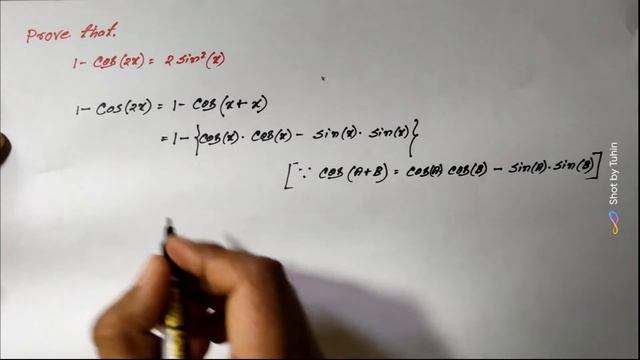 Prove that.
1 - Cos(2x) = 2 Sin²(x)
1 - Cos(2x) = 1 - Cos(x + x)
= 1 - {Cos(x) · Cos(x) - Sin(x) · Sin(x)}
[∵ Cos(A+B) = Cos(A) Cos(B) - Sin(A) · Sin(B)]
Shot by Tuhin